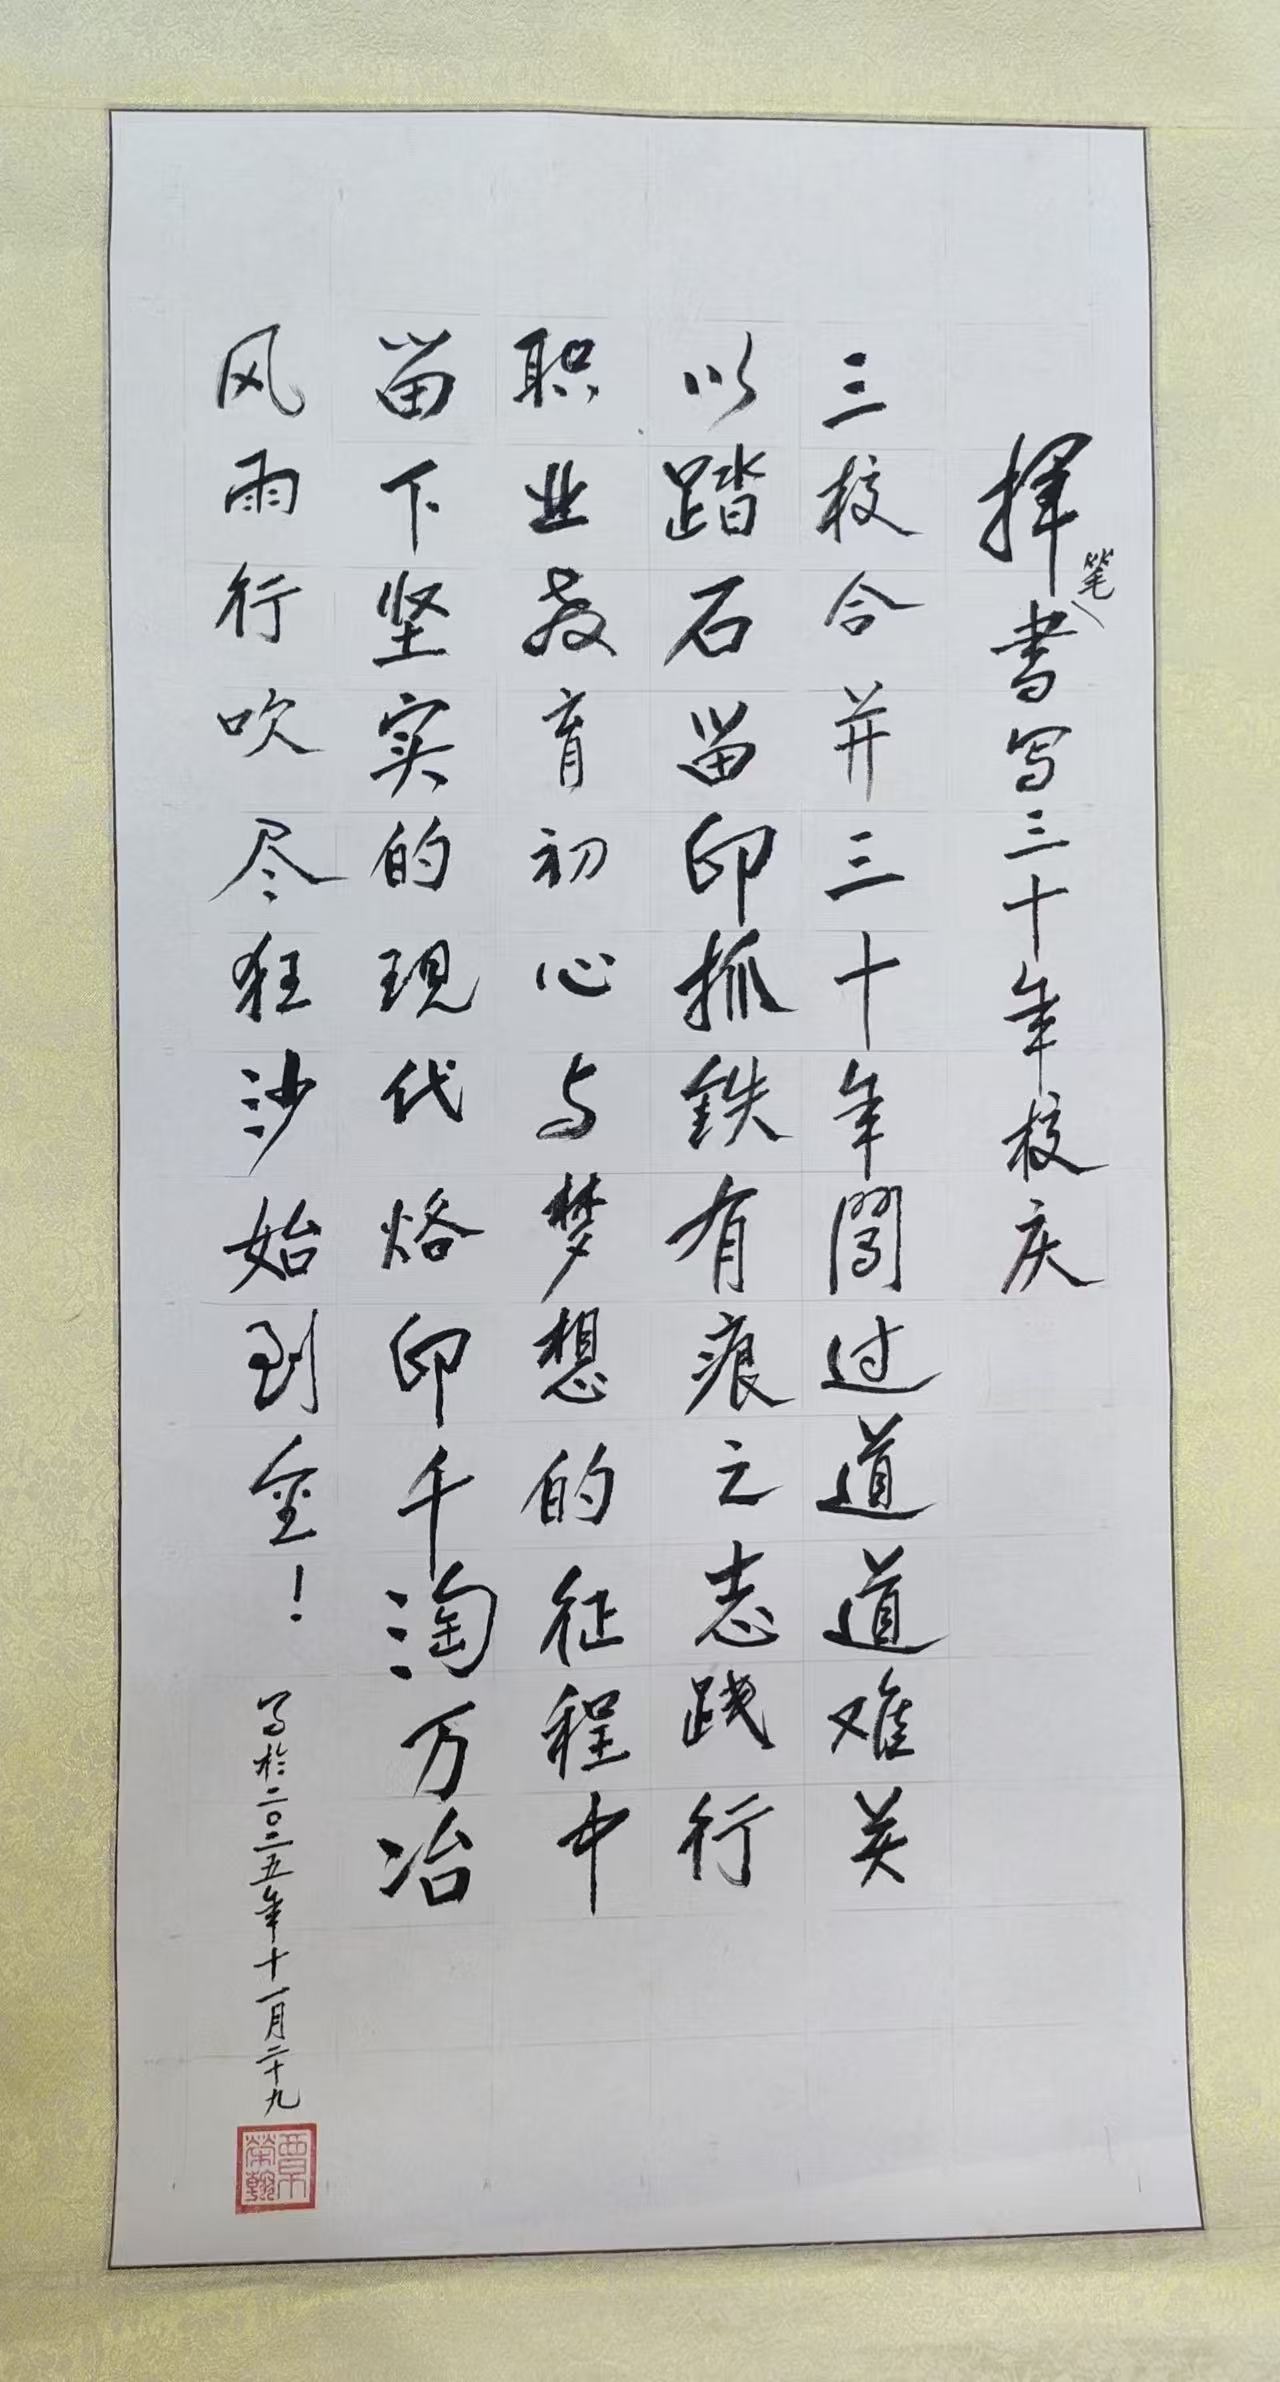 挥笔书写三十年校庆
三校合并三十年闯过道道难关
以踏石留印抓铁有痕之志践行
职业教育初心与梦想的征程中
留下坚实的现代烙印千淘万冶
风雨行吹尽狂沙始到金！
写於二〇二五年十一月二十九